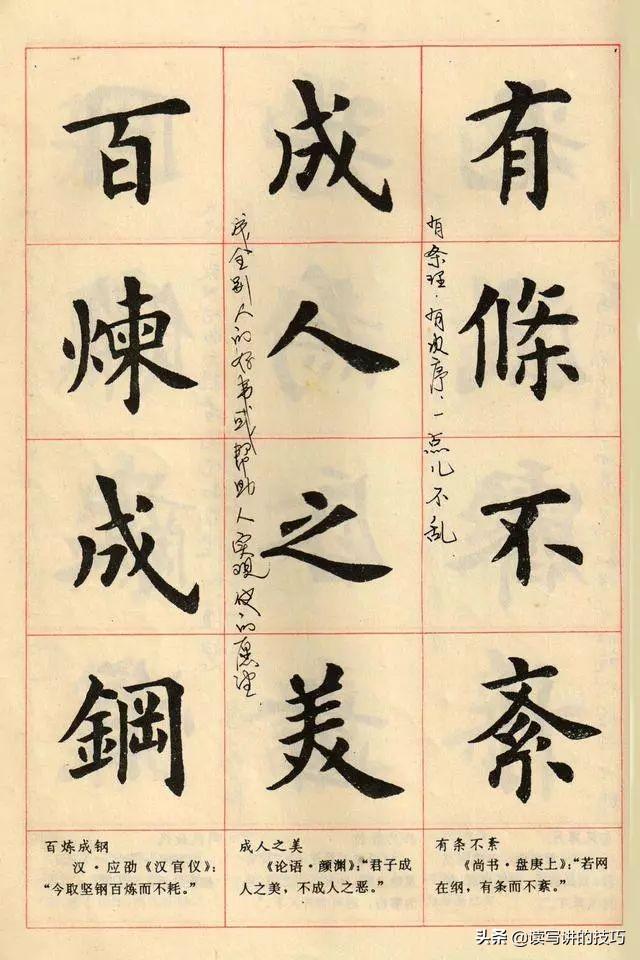 有條不紊
有条理·有次序·一点儿不乱
成人之美
成全别人的好事或帮助人实现他的愿望
百煉成鋼
有条不紊
《尚书·盘庚上》：“若网
在纲，有条而不紊。”
成人之美
《论语·颜渊》：“君子成
人之美，不成人之恶。”
百炼成钢
汉·应劭《汉官仪》：
“今取坚钢百炼而不耗。”
头条 @读写讲的技巧